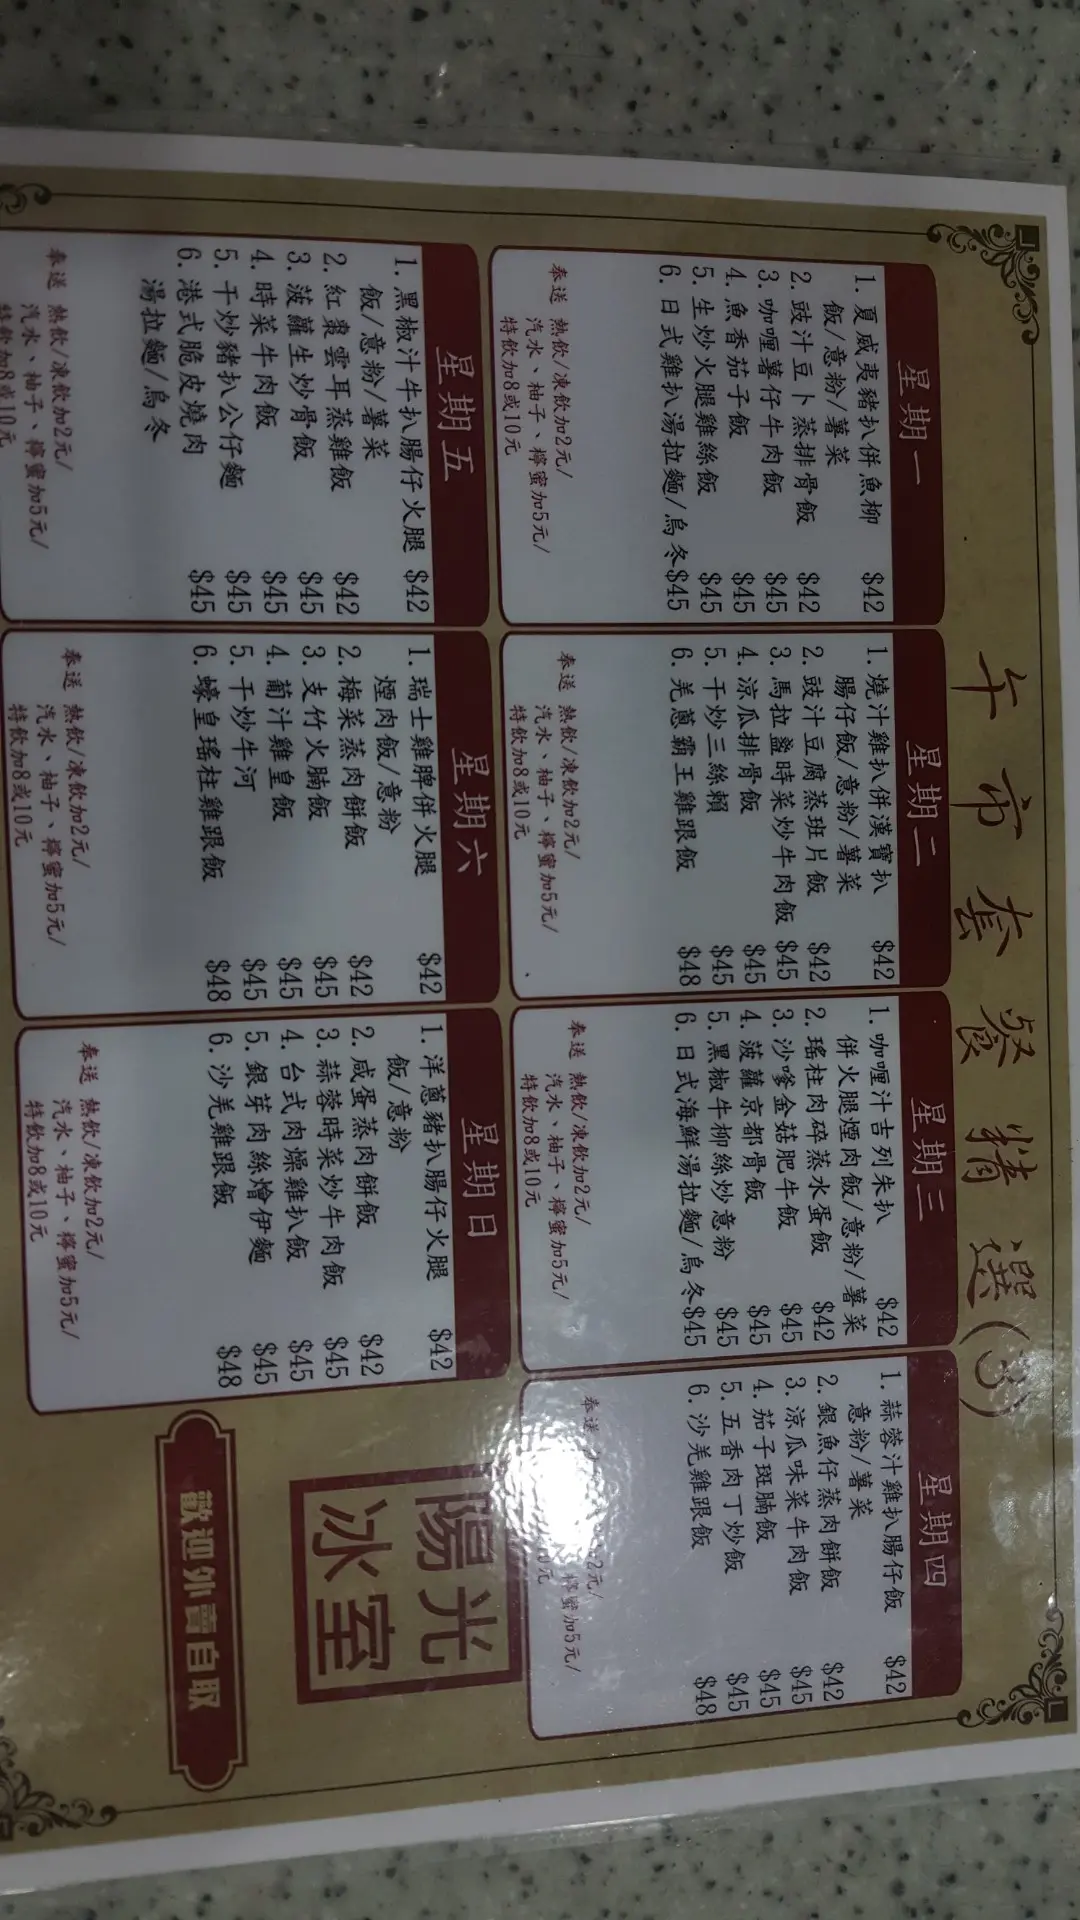 午市套餐精選(3)
星期一
1.夏威夷豬扒併魚柳 $42
飯/意粉/薯菜
2.豉汁豆卜蒸排骨飯 $42
3.咖喱薯仔牛肉飯 $45
4.魚香茄子飯 $45
5.生炒火腿雞絲飯 $45
6.日式雞扒湯拉麵/烏冬$45
奉送 熱飲/凍飲加2元/
汽水、柚子、檸蜜加5元/
特飲加8或10元
星期二
1.燒汁雞扒併漢寶扒 $42
腸仔飯/意粉/薯菜
2.豉汁豆腐蒸班片飯 $42
3.馬拉盞時菜炒牛肉飯 $45
4.涼瓜排骨飯 $45
5.干炒三絲賴 $45
6.羌蔥霸王雞跟飯 $48
奉送 熱飲/凍飲加2元/
汽水、柚子、檸蜜加5元/
特飲加8或10元
星期三
1.咖喱汁吉列朱扒 $42
併火腿煙肉飯/意粉/薯菜
2.瑤柱肉碎蒸水蛋飯 $42
3.沙嗲金菇肥牛飯 $45
4.菠蘿京都骨飯 $45
5.黑椒牛柳絲炒意粉 $45
6.日式海鮮湯拉麵/烏冬$45
奉送 熱飲/凍飲加2元/
汽水、柚子、檸蜜加5元/
特飲加8或10元
星期四
1.蒜蓉汁雞扒腸仔飯 $42
意粉/薯菜
2.銀魚仔蒸肉餅飯 $42
3.涼瓜味菜牛肉飯 $45
4.茄子斑腩飯 $45
5.五香肉丁炒飯 $45
6.沙羌雞跟飯 $48
奉送 2元/
檸蜜加5元/
元
星期五
1.黑椒汁牛扒腸仔火腿 $42
飯/意粉/薯菜
2.紅棗雲耳蒸雞飯 $42
3.菠蘿生炒骨飯 $45
4.時菜牛肉飯 $45
5.干炒豬扒公仔麵 $45
6.港式脆皮燒肉 $45
湯拉麵/烏冬
奉送 熱飲/凍飲加2元/
汽水、柚子、檸蜜加5元/
特飲加8或10元
星期六
1.瑞士雞脾併火腿 $42
煙肉飯/意粉
2.梅菜蒸肉餅飯 $42
3.支竹火腩飯 $45
4.葡汁雞皇飯 $45
5.干炒牛河 $45
6.蠔皇瑤柱雞跟飯 $48
奉送 熱飲/凍飲加2元/
汽水、柚子、檸蜜加5元/
特飲加8或10元
星期日
1.洋蔥豬扒腸仔火腿 $42
飯/意粉
2.咸蛋蒸肉餅飯 $42
3.蒜蓉時菜炒牛肉飯 $45
4.台式肉燥雞扒飯 $45
5.銀芽肉絲燴伊麵 $45
6.沙羌雞跟飯 $48
奉送 熱飲/凍飲加2元/
汽水、柚子、檸蜜加5元/
特飲加8或10元
陽光
冰室
歡迎外賣自取